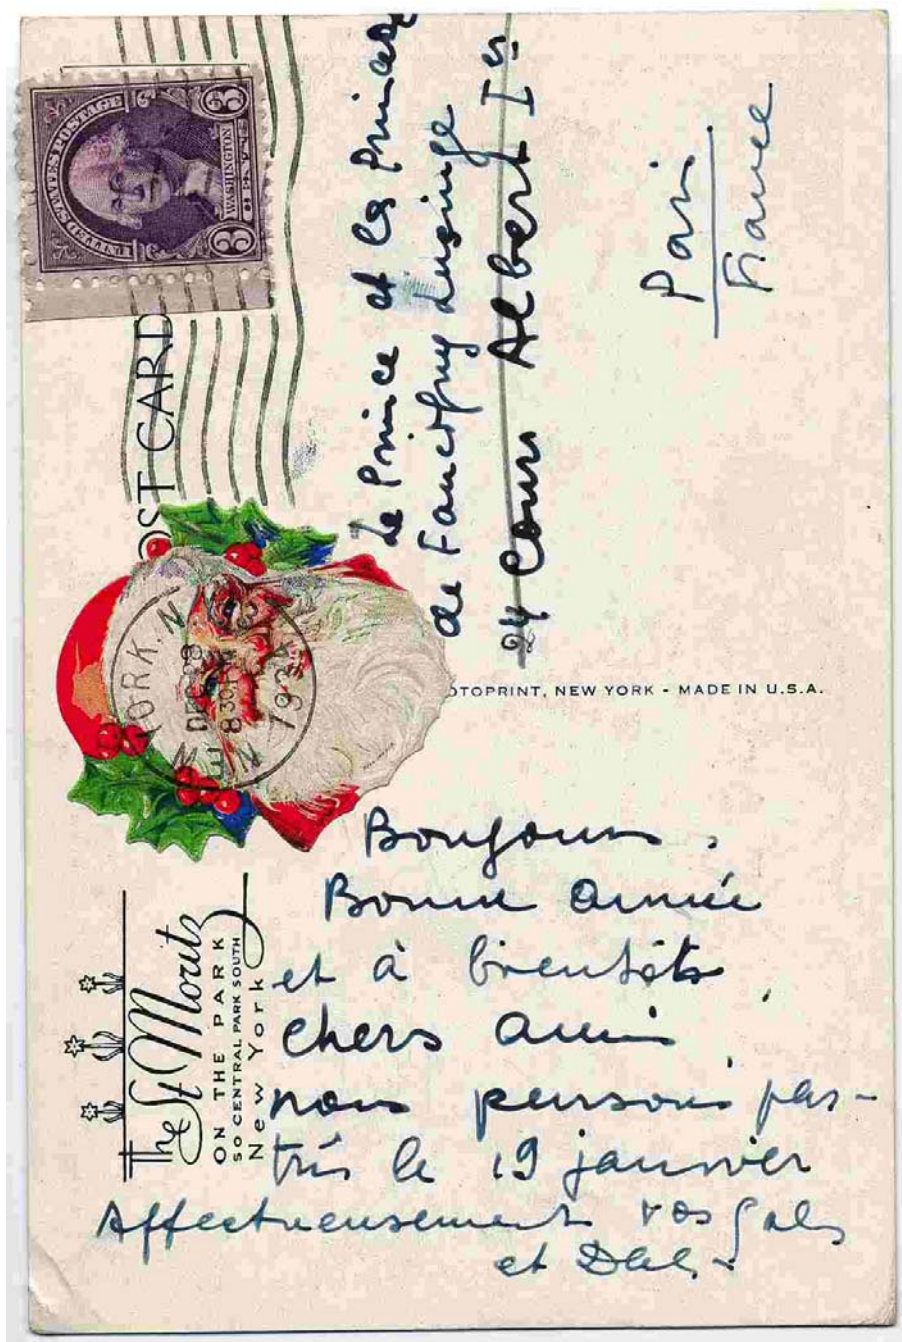 UNITED STATES POSTAGE
3 WASHINGTON 3
POST CARD
YORK, N
8 30 PM
1934
Le Prince et la Princesse
de Faucigny Lusinge
24 Cours Albert Ier
Paris
France
OTOPRINT, NEW YORK - MADE IN U.S.A.
The St Moritz
ON THE PARK
50 CENTRAL PARK SOUTH
New York
Bonjour.
Bonne année
et à bientôts,
chers amis
nous pensons par-
tir le 19 janvier
Affectueusement vos Gala
et Dali